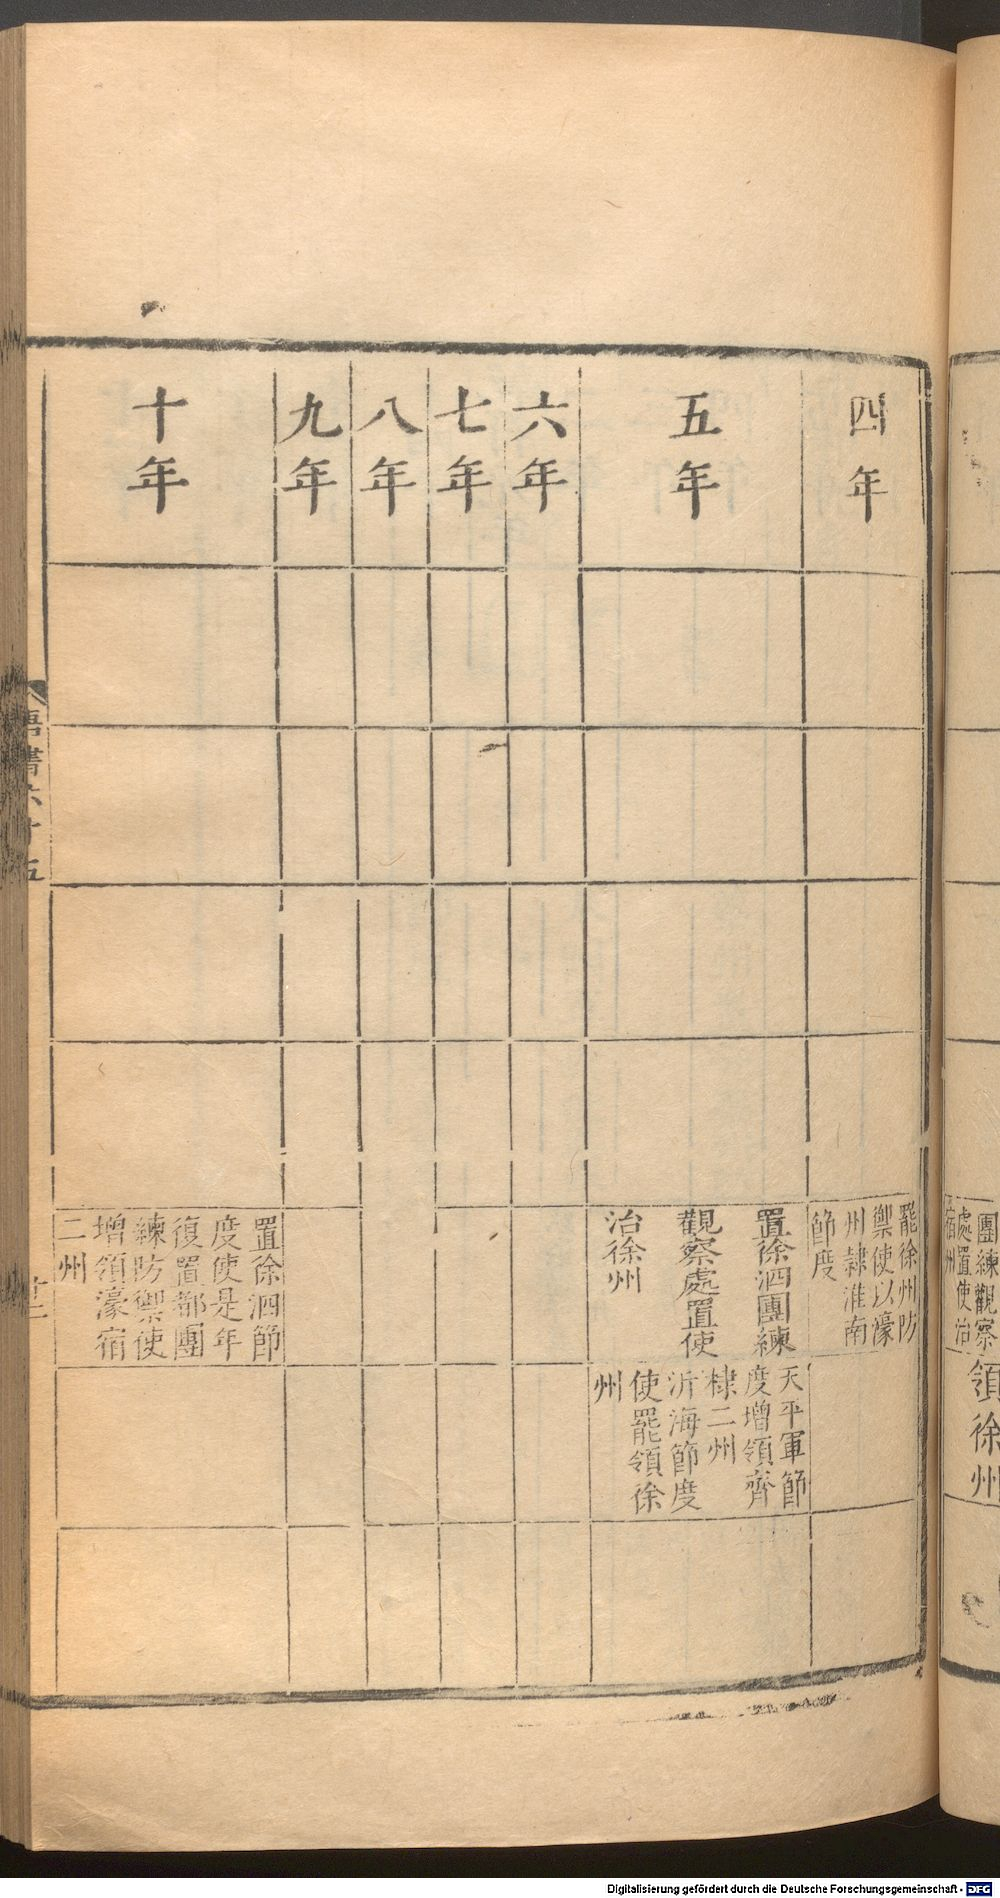 團練觀察
處置使治
宿州
領徐州
四年
罷徐州防
禦使以濠
州隷淮南
節度
五年
置徐泗團練
觀察處置使
治徐州
天平軍節
度增領齊
棣二州
沂海節度
使罷領徐
州
六年
七年
八年
九年
十年
置徐泗節
度使是年
復置都團
練防禦使
增領濠宿
二州
唐書六十五
Digitalisierung gefördert durch die Deutsche Forschungsgemeinschaft - DFG